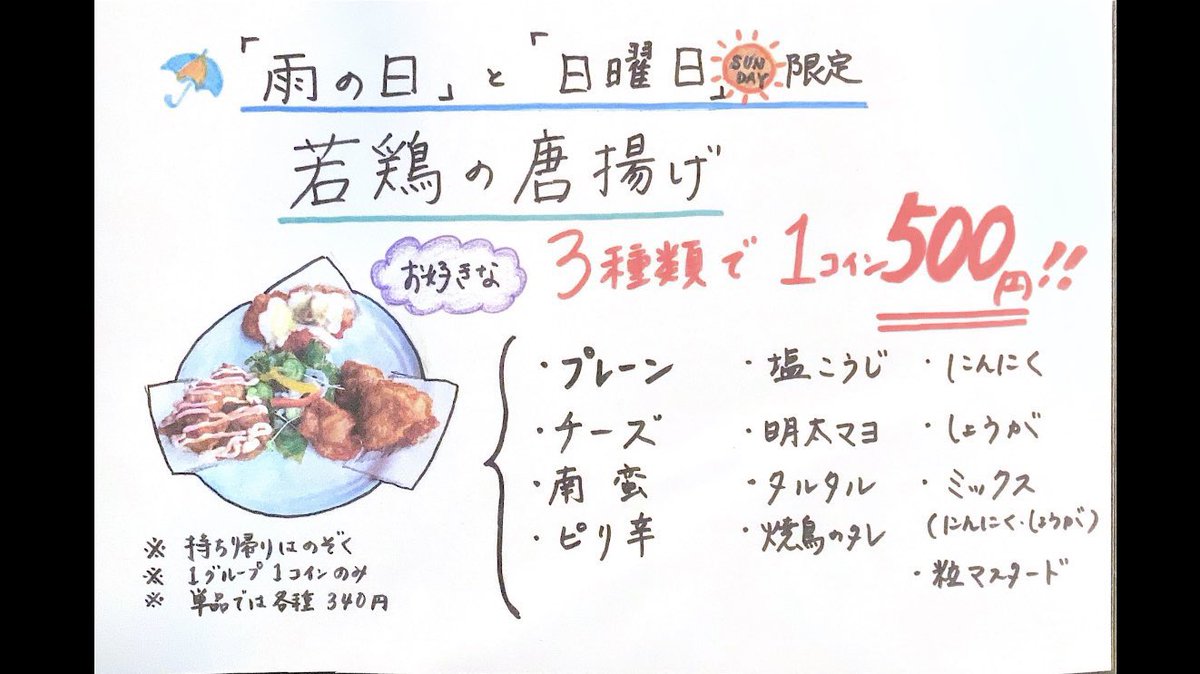 「雨の日」と「日曜日」SUN DAY 限定
若鶏の唐揚げ
お好きな 3種類で 1コイン500円!!
・プレーン ・塩こうじ ・にんにく
・チーズ ・明太マヨ ・しょうが
・南蛮 ・タルタル ・ミックス
(にんにく・しょうが)
・ピリ辛 ・焼鳥のタレ
・粒マスタード
※ 持ち帰りはのぞく
※ 1グループ1コインのみ
※ 単品では各種340円